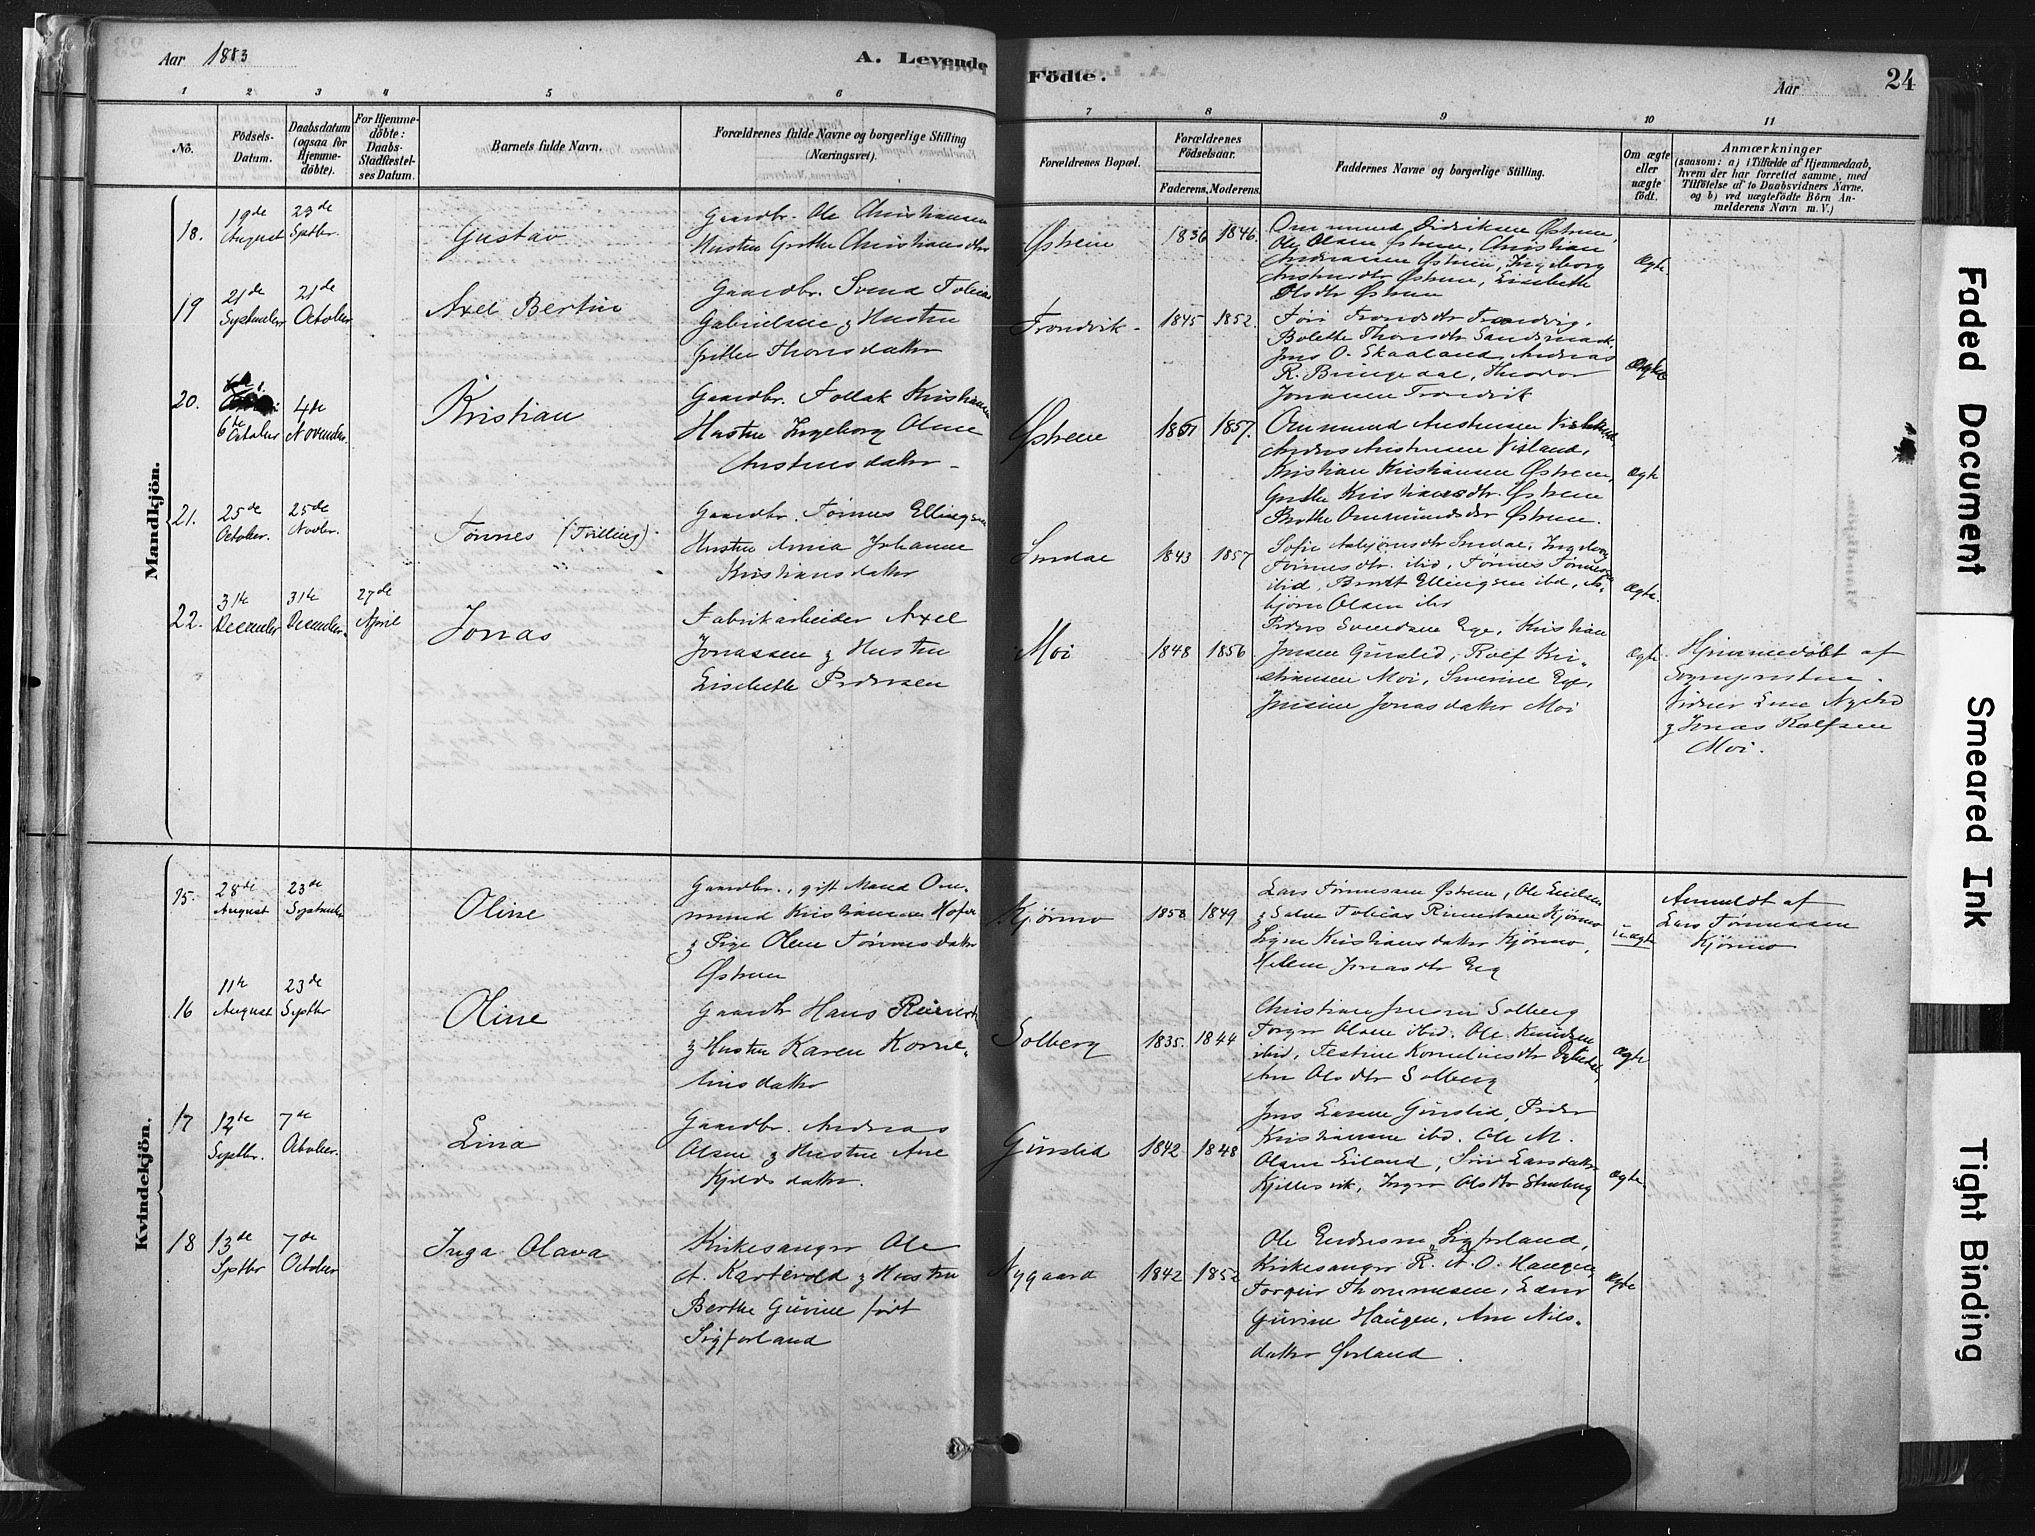 Aar 1883
A. Levende Födte.
Aar
24
1 2 3 4 5 6 7 8 9 10 11
No.
Födsels-
Datum.
Daabsdatum
(ogsaa for
Hjemme-
døbte).
For Hjemme-
døbte:
Daabs-
Stadfæstel-
ses Datum.
Barnets fulde Navn.
Forældrenes fulde Navne og borgerlige Stilling
(Næringsvei).
Forældrenes Bopæl.
Forældrenes
Födselsaar.
Faderens. Moderens.
Faddernes Navne og borgerlige Stilling.
Om ægte
eller
uægte
født.
Anmærkninger
(saasom: a) i Tilfælde af Hjemmedaab,
hvem der har forrettet samme, med
Tilföielse af to Daabsvidners Navne,
og b) ved uægtefödte Börn An-
melderens Navn m. V.)
Mandkjön.
18.
19de
August
23de
Septbr.
Gustav
Gaardbr. Ole Christiansen
Hustru Grethe Christiansdtr
Østrem
1836 1846.
Ommund Didriksen Østrem,
Ole Olsen Østrem, Christian
Andreassen Østrem, Ingeborg
Østrem, Elisabeth
Olsdtr Østrem
Ægte.
19
21de
September
21de
October
Axel Bertin
Gaardbr. Svend Tobias
Gabrielsen & Hustru
Thorsdatter
Trondvik
1845 1852.
Trondsdtr Trondvig,
Bolette Thorsdtr Sandsmark,
Jens O. Skaaland, Andreas
R. Bringedal, Theodor
Jonassen Trondvik
Ægte
20.
6te October
4de
November.
Kristian
Gaardbr. Tollak Kristiansen
Hustru Ingeborg Oline
Østrem
1857.
Ommund
Visland,
Kristian Kristiansen Østrem,
Grethe Kristiansdtr. Østrem
Berthe Ommundsdtr Østrem.
Ægte
21.
25de
October.
25de
Novbr.
Tønnes (Tvilling)
Gaardbr. Tønnes Ellingsen
Hustru Anna Johanne
Kristiansdatter
1843 1857
Sofie Asbjørnsdtr Ingeborg
Tønnesdtr. ibid, Tønnes Tønnesen
ibid, Berndt Ellingsen ibd, As-
bjørn Olsen ibd
Ægte.
22.
31te
December
31te
December.
27de
April
Jonas
Fabrikarbeider Axel
Jonassen & Hustru
Elisabeth Pedersen
Moi
1848 1856
Peders Svendsen Ege, Kristian
Jensen Gursled, Rolf Kri-
stiansen Moi, Severine Ege,
Jensine Jonasdatter Moi
Ægte
Hjemmedøbt af
Sognepresten.
Vidner Lene
& Jonas Rolfsen
Moi.
Kvindekjön.
15.
28de
August
23de
September
Oline
Gaardbr., gift Mand Om-
mund Kristiansen
& Pige Olene Tønnesdatter
Østrem
Kjørmo
1858 1849
Lars Tønnessen Østrem, Ole
& Salve Tobias Kjørmo
Signe Kristiansdatter Kjørmo,
Helene Jonasdtr Eeg
uægte
Anmeldt af
Lars Tønnessen
Kjørmo
16
11te
August
23de
Septbr
Oline
Gaardbr Hans
& Hustru Karen Korne-
liusdatter
Solberg
1835. 1844
Christian Jensen Solberg
Torger Olsen ibid. Ole Knudsen
ibid, Testine Korneliusdtr
Ane Olsdtr Solberg
Ægte
17
12te
Septbr.
7de
October.
Lina
Gaardbr. Andreas
Olsen & Hustru Ane
Kjeldsdatter.
Gursled
1842 1848
Jens Larsen Gursled, Peder
Kristiansen ibd. Ole M.
Olsen Eiland, Siri Larsdatter
Kjellesvik, Inger Olsdtr
Ægte.
18
13de
Septbr
7de
October
Inga Olava
Kirkesanger Ole
A. Kartevold & Hustru
Berthe Gurine født
Sigforland
Nygaard
1842 1852
Ole Endresen Sigforland,
Kirkesanger R. A. O. Haugen,
Torger Thommesen,
Gurine Haugen, Ane Nils-
datter Ørland.
Ægte
Faded Document
Smeared Ink
Tight Binding